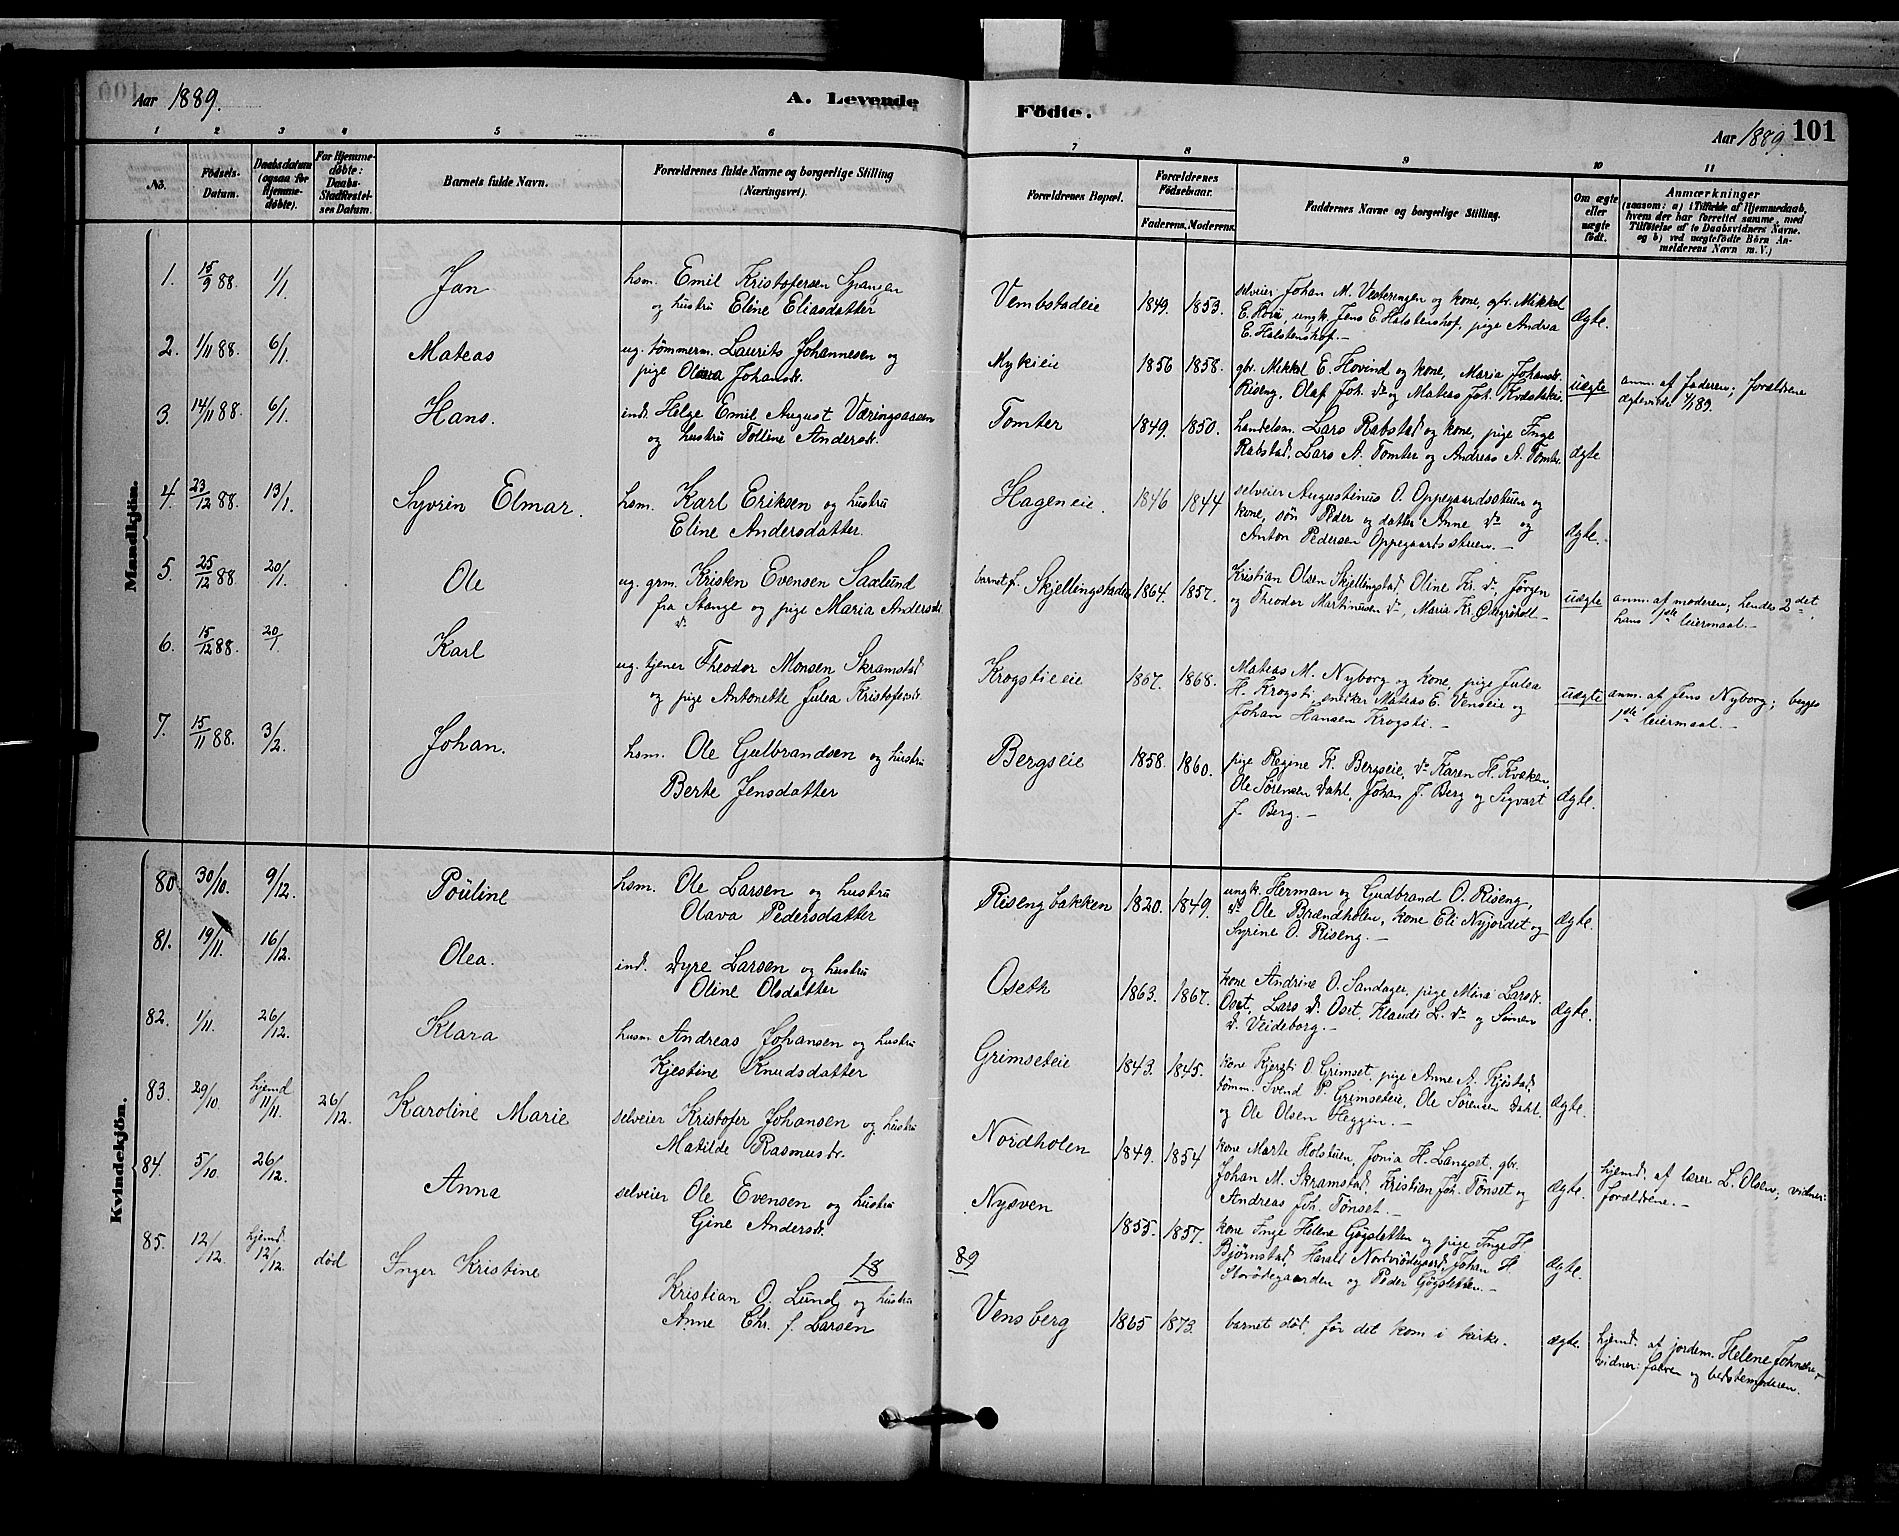 Aar 1889.
A. Levende
Födte.
Aar 1889.
101
1 2 3 4 5 6
7 8 9 10 11
No.
Födsels-
Datum.
Daabsdatum
(ogsaa for
Hjemme-
døbte).
For Hjemme-
døbte:
Daabs-
Stadfæstel-
ses Datum.
Barnets fulde Navn.
Forældrenes fulde Navne og borgerlige Stilling
(Næringsvei).
Forældrenes Bopæl.
Forældrenes
Födselsaar.
Faderens. Moderens.
Faddernes Navne og borgerlige Stilling.
Om ægte
eller
uægte
født.
Anmærkninger
(saasom: a) i Tilfælde af Hjemmedaab,
hvem der har forrettet samme, med
Tilføielse af to Daabsvidners Navne.
og b) ved uægtefødte Börn An-
melderens Navn m. V.)
Mandkjön.
1. 15/9 88. 1/1. Jan
hsm. Emil Kristofersen Spangen
og hustru Eline Eliasdatter
Vembstadeie 1849. 1853.
selveier Johan M. Vesterengen og kone, gbr. Mikkel
E. Hovi, ungk. Jens E. Halstenshof, pige Andrea
E. Halstenshof.
ægte.
2. 1/11 88. 6/1. Mateas
ug. tømmerm. Laurits Johannesen og
pige Olava Johansdr.
Mykieie 1856 1858.
gbr. Mikkel E. Hovind og kone, Maria Johansdr.
Riseng, Olaf Joh. do og Mateas Joh.
uægte
anm. af faderen; forældrene
ægteviede 4/1 89.
3. 14/11 88. 6/1. Hans.
ind. Helge Emil August Væringsaasen
og hustru Tolline Andersdr.
Tomter 1849. 1850.
handelsm. Lars Rabstad og kone, pige Inge
Rabstad, Lars A. Tomter og Andreas A. Tomter.
ægte
4. 23/12 88. 13/1. Syvrin Elmar.
hsm. Karl Eriksen og hustru
Eline Andersdatter.
Hageneie. 1846 1844
selveier Augustinus O. Oppegaardsstuen og
kone, søn Peder og datter Anne do og
Anton Pedersen Oppegaardsstuen.
ægte.
5. 25/12 88 20/1. Ole
ug. grm. Kristen Evensen Saxlund
fra Stange og pige Maria Andersdr.
do
barnet f. Skjellingstadeie 1864. 1857.
Kristian Olsen Skjellingstad, Oline Kr. do, Jørgen
og Theodor Martinusen do, Maria Kr.
uægte
anm. af moderen; hendes 2det,
hans 1ste leiermaal.
6. 15/12 88. 20/1 Karl
ug. tjener Theodor Monsen Skramstad
og pige Antonette Julea Kristofersdr.
Krogstieeie 1867. 1868.
Mateas M. Nyborg og kone, pige Julea
H. Krogsti, snikker Mateas E. Venseie og
Johan Hansen Krogsti.
uægte
anm. af Jens Nyborg; begges
1ste leiermaal.
7. 15/11 88. 3/2. Johan.
hsm. Ole Gulbrandsen og hustru
Berte Jensdatter
Bergseie 1858. 1860.
pige Regine K. Bergseie, do Karen H. Kvæken,
Ole Sørensen Dahl, Johan J. Berg og Sigvart
J. Berg.
ægte.
Kvindekjön.
80 30/10. 9/12. Pouline
hsm. Ole Larsen og hustru
Olava Pedersdatter
Risengbakken 1820. 1849.
ungk. Herman og Gudbrand O. Riseng,
do Ole Brændholen, kone Eli Nyjordet og
Syrine O. Riseng.
ægte.
81. 19/11. 16/12. Olea.
ind. Dyre Larsen og hustru
Oline Olsdatter
Oseth 1863. 1867.
kone Andrine O. Sandager, pige Mina Larsdr.
Oset, Lars D. Oset, Klaudi L. do og Simen
D. Veideborg.
ægte.
82. 1/11. 26/12. Klara
husm. Andreas Johansen og hustru
Kjestine Knudsdatter
Grimseteie 1843. 1845.
kone Kjersti O Grimset, pige Anne A. Kjøstad,
tømm. Svend P. Grimseteie, Ole Sørensen Dahl
og Ole Olsen Heggen.
ægte.
83. 29/10. hjemd 11/11. 26/12. Karoline Marie
selveier Kristofer Johansen og hustru
Matilde Rasmusdr.
Nordholen 1849. 1854
kone Marte Holstuen, Jonia H. Langset, gbr.
Johan M. Skramstad, Kristian Joh. Tønset og
Andreas Joh. Tønset.
ægte.
hjemd. af lærer L. Olsen, vidner:
forældrene.
84. 5/10. 26/12. Anna
selveier Ole Evensen og hustru
Gine Andersdr.
Nysven 1855. 1857.
kone Inge Helene Gøgsletten og pige Inge H.
Bjørnstad, Harald Nordviødegaard, Johan H.
Storødegaarden og Peder Gøgsletten.
ægte.
18 89
85. 12/12. hjemd. 12/12. død Inger Kristine
Kristian O. Lund og hustru
Anne Chr. f. Larsen
Vensberg 1865 1873.
barnet død, før det kom i kirke.
ægte.
hjemd. af jordem. Helene Johnsen,
vidner: faren og bedstemoderen.